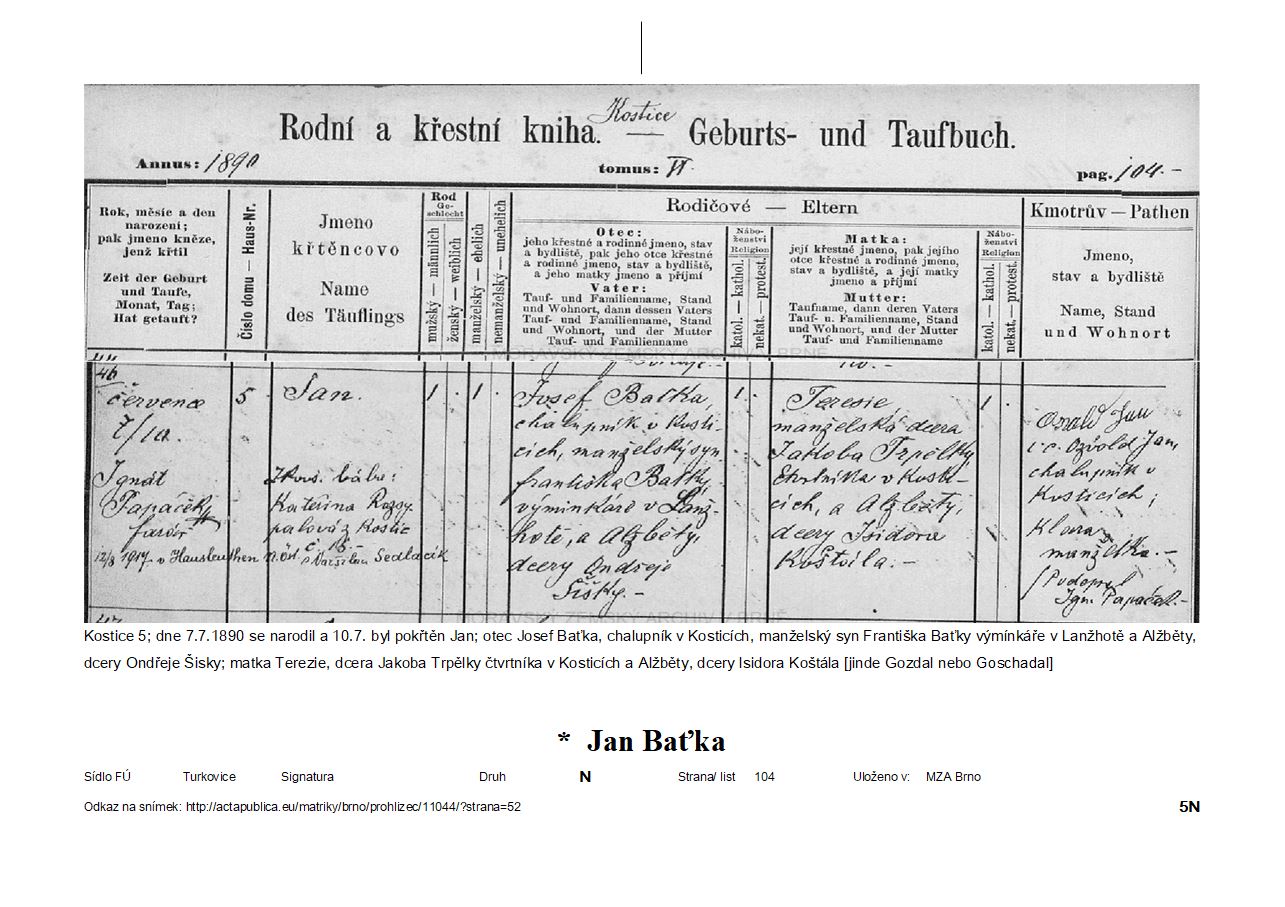 Kostice
Rodní a křestní kniha. — Geburts- und Taufbuch.
Annus: 1890 tomus: VI. pag. 104.-
Rok, měsíc a den
narození;
pak jmeno kněze,
jenž křtil
Zeit der Geburt
und Taufe,
Monat, Tag;
Hat getauft?
Číslo domu — Haus-Nr.
Jmeno
křtěncovo
Name
des Täuflings
Rod
Ge-
schlecht
mužský — männlich
ženský — weiblich
manželský — ehelich
nemanželský — unehelich
Rodičové — Eltern
Otec:
jeho křestné a rodinné jmeno, stav
a bydliště, pak jeho otce křestné
a rodinné jmeno, stav a bydliště,
a jeho matky jmeno a příjmí
Vater:
Tauf- und Familienname, Stand
und Wohnort, dann dessen Vaters
Tauf- und Familienname, Stand
und Wohnort, und der Mutter
Tauf- und Familienname
Nábo-
ženství
Religion
katol. — kathol.
nekat. — protest.
Matka:
její křestné jmeno, pak jejího
otce křestné a rodinné jmeno,
stav a bydliště, a její matky
jmeno a příjmí
Mutter:
Taufname, dann deren Vaters
Tauf- u. Familienname, Stand
und Wohnort, und der Mutter
Tauf- und Familienname
Nábo-
ženství
Religion
katol. — kathol.
nekat. — protest.
Kmotrův — Pathen
Jmeno,
stav a bydliště
Name, Stand
und Wohnort
MORAVSKÝ ZEMSKÝ ARCHIV V BRNĚ
46
července
7/10.
Ignát
Papáček
farář
5
Jan.
Zkouš. bába:
Kateřina Rozsy-
palová z Kostic
č. 18.-
12/8 1917 v Hausleuthen n.Öst. s Sedlacik
1 . 1 .
Josef Baťka,
chalupník v Kosti-
cích, manželský syn
Františka Baťky,
výminkáře v Lanž-
hotě, a Alžběty,
dcery Ondřeje
Šišky.-
1.
Teresie,
manželská dcera
Jakoba Trpělky,
čtvrtníka v Kosti-
cích, a Alžběty,
dcery Isidora
Koštála.-
1
Osvald Jan
i.e. Ozvold Jan,
chalupník v
Kosticích;
Klara
manželka.-
Podepsal
Ign. Papáček.-
MORAVSKÝ ZEMSKÝ ARCHIV V BRNĚ
Kostice 5; dne 7.7.1890 se narodil a 10.7. byl pokřtěn Jan; otec Josef Baťka, chalupník v Kosticích, manželský syn Františka Baťky výmínkáře v Lanžhotě a Alžběty,
dcery Ondřeje Šisky; matka Terezie, dcera Jakoba Trpělky čtvrtníka v Kosticích a Alžběty, dcery Isidora Koštála [jinde Gozdal nebo Goschadal]
* Jan Baťka
Sídlo FÚ Turkovice Signatura Druh N Strana/ list 104 Uloženo v: MZA Brno
Odkaz na snímek: http://actapublica.eu/matriky/brno/prohlizec/11044/?strana=52 5N